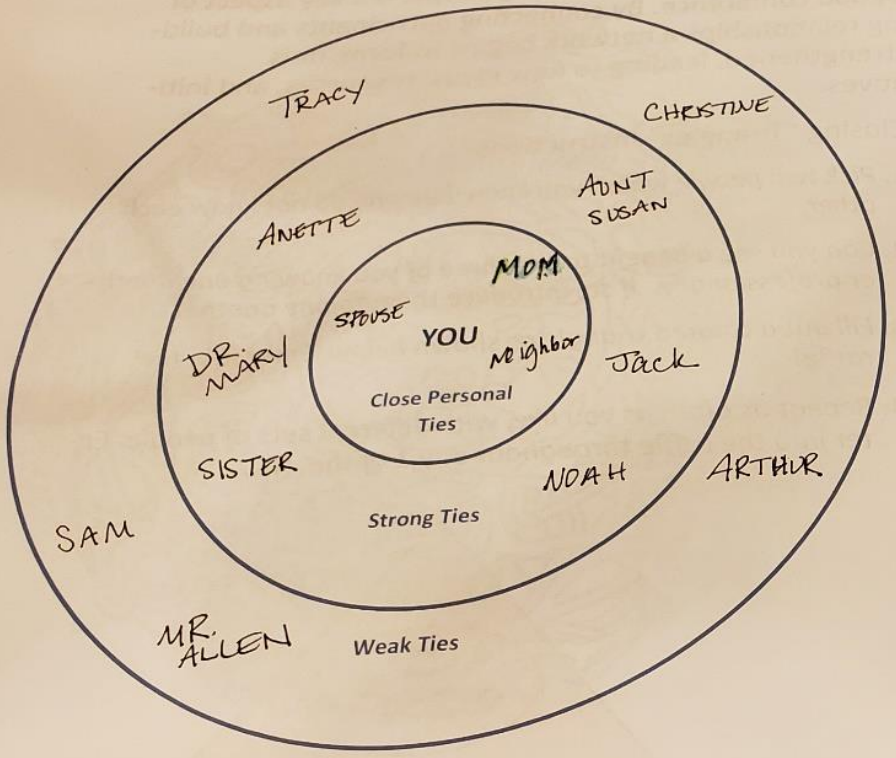 TRACY
CHRISTINE
AUNT
SUSAN
ANETTE
MOM
SPOUSE
YOU
Neighbor
DR.
MARY
Jack
Close Personal
Ties
SISTER
NOAH
ARTHUR
Strong Ties
SAM
MR.
ALLEN
Weak Ties